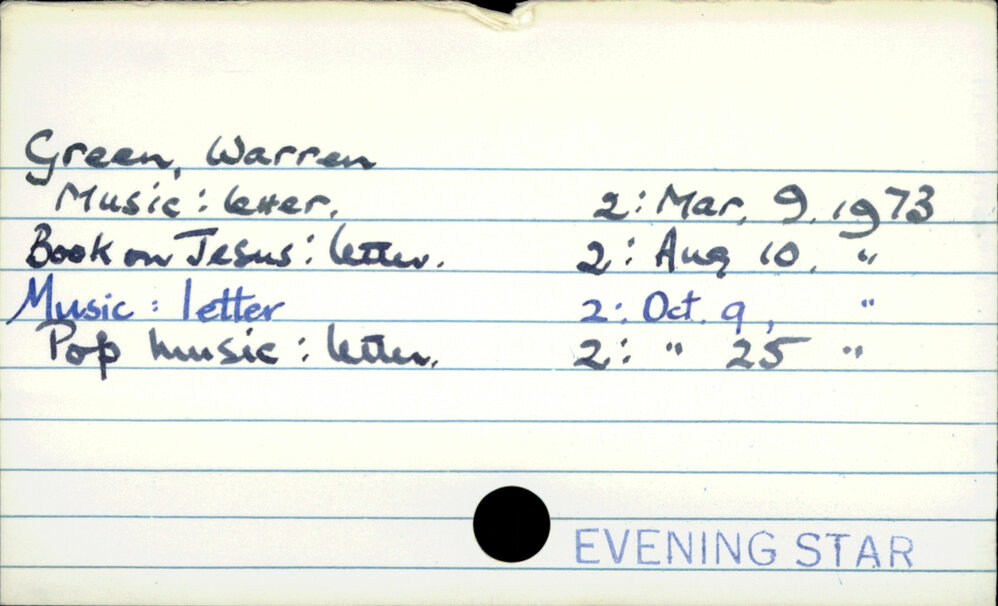 Green, Warren
Music: letter. 2: Mar. 9. 1973
Book on Jesus: letter. 2: Aug 10. "
Music: letter 2: Oct. 9, "
Pop music: letter. 2: " 25 "
EVENING STAR